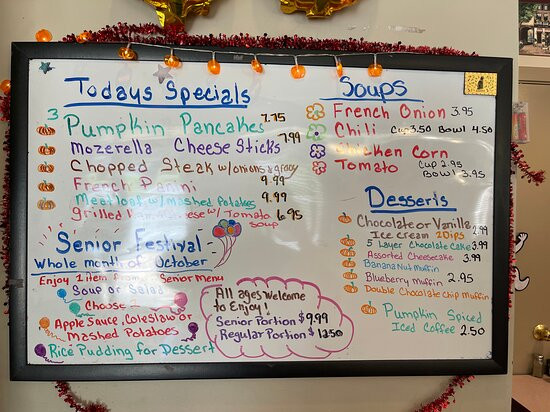 Todays Specials
3 Pumpkin Pancakes 7.75
Mozerella Cheese Sticks 7.99
Chopped Steak w/onions & gravy 9.99
French Panini 9.99
Meatloaf w/mashed Potatoes 9.99
grilled Ham Cheese w/ Tomato Soup 6.95
Senior Festival
Whole month of October
Enjoy 1 item from Senior Menu
Soup or Salad
Choose
Apple Sauce, Coleslaw or
Mashed Potatoes
Rice Pudding for Dessert
All ages Welcome
to Enjoy!
Senior Portion $9.99
Regular Portion $12.50
Soups
French Onion 3.95
Chili Cup 3.50 Bowl 4.50
Chicken Corn
Tomato Cup 2.95
Bowl 3.95
Desserts
Chocolate or Vanilla
Ice Cream 2 Dips 2.99
5 Layer Chocolate Cake 3.99
Assorted Cheesecake 3.99
Banana Nut Muffin
Blueberry Muffin 2.95
Double Chocolate Chip Muffin
Pumpkin Spiced
Iced Coffee 2.50